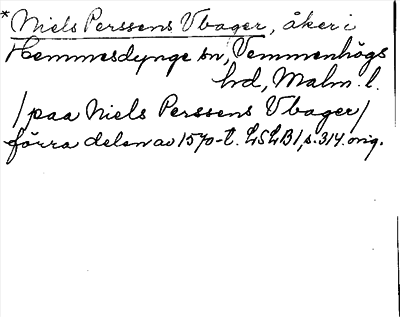 *Niels Perssens Vbager, åker i
Hemmesdynge sn, Vemmenhögs
hd, Malm. l.
/paa Niels Perssens Vbager/
förra delen av 1570-t. LSLB1, s. 314. orig.